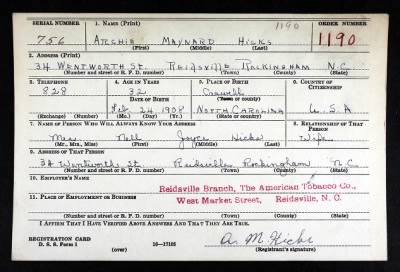 SERIAL NUMBER 1. NAME (Print) ORDER NUMBER
1190
756 ARCHIE MAYNARD HICKS 1190
(First) (Middle) (Last)
2. ADDRESS (Print)
34 WENTWORTH ST. REIDSVILLE ROCKINGHAM N.C.
(Number and street or R. F. D. number) (Town) (County) (State)
3. TELEPHONE 4. AGE IN YEARS 5. PLACE OF BIRTH 6. COUNTRY OF CITIZENSHIP
828 32 Caswell
DATE OF BIRTH (Town or county)
Feb. 24 1908 NORTH CAROLINA U.S.A
(Exchange) (Number) (Mo.) (Day) (Yr.) (State or country)
7. NAME OF PERSON WHO WILL ALWAYS KNOW YOUR ADDRESS 8. RELATIONSHIP OF THAT PERSON
Mrs. Nell Joyce Hicks Wife
(Mr., Mrs., Miss) (First) (Middle) (Last)
9. ADDRESS OF THAT PERSON
34 Wentworth St Reidsville Rockingham N.C.
(Number and street or R. F. D. number) (Town) (County) (State)
10. EMPLOYER'S NAME
Reidsville Branch, The American Tobacco Co.,
11. PLACE OF EMPLOYMENT OR BUSINESS
West Market Street, Reidsville, N. C.
(Number and street or R. F. D. number) (Town) (County) (State)
I AFFIRM THAT I HAVE VERIFIED ABOVE ANSWERS AND THAT THEY ARE TRUE.
REGISTRATION CARD
D. S. S. Form 1 16-17105 A. M. Hicks
(over) (Registrant's signature)